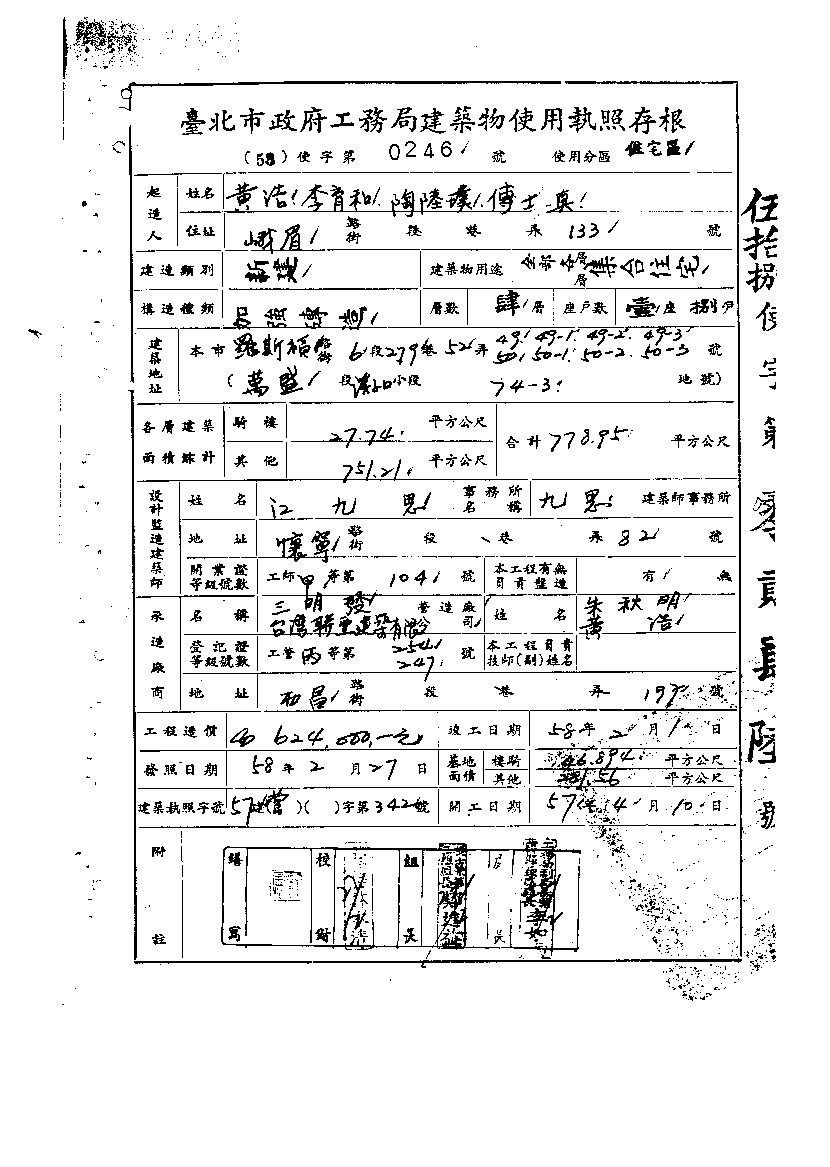 臺北市政府工務局建築物使用執照存根
(58)使字第 0246 號 使用分區 住宅區
起造人 姓名 黃浩 李育和 陶陸璞 傅士真
住址 峨眉 路街 段 巷 弄 133 號
建造類別 新建 建築物用途 全部各層集合住宅
構造種類 加強磚造 層數 肆層 座戶數 壹座 捌戶
建築地址 本市 羅斯福路街 6段279巷52弄 49, 49-1, 49-2, 49-3 50, 50-1, 50-2, 50-3 號
(萬盛 段 溪口小段 74-3 地號)
各層建築面積餘計 騎樓 27.74 平方公尺 合計 778.95 平方公尺
其他 751.21 平方公尺
設計監造建築師 姓名 江九思 事務所名稱 九思 建築師事務所
地址 懷寧 路街 段 巷 弄 82 號
開業證等級號數 工師甲等第 1041 號 本工程有無負責監造 有 無
承造廠商 名稱 三明發 台灣聯亜建築有限公司 營造廠 姓名 朱秋明 黃浩
登記證等級號數 工營丙等第 254 247 號 本工程負責技師(副)姓名
地址 西昌 路街 段 巷 弄 193 號
工程造價 624,000,-元 竣工日期 58年2月1日
發照日期 58年2月27日 基地面積 樓騎 46.894 平方公尺
其他 平方公尺
建築執照字號 57建(營)( )字第342號 開工日期 57年4月10日
附註 繕寫 校對 組長 長
伍拾捌使字第零貳肆陸號